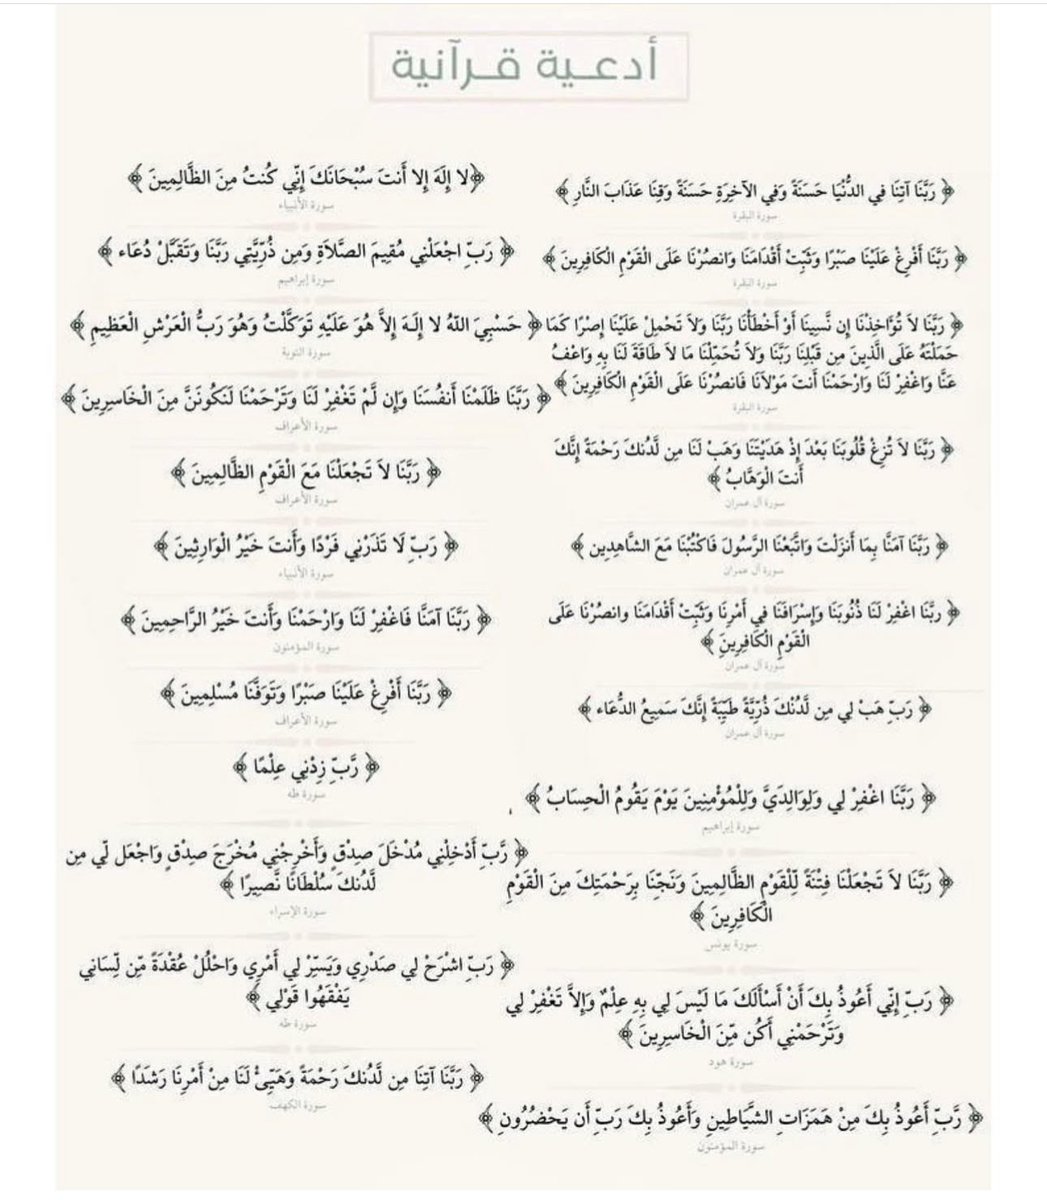 أدعـية قـرآنية
﴿ رَبَّنَا آتِنَا فِي الدُّنْيَا حَسَنَةً وَفِي الآخِرَةِ حَسَنَةً وَقِنَا عَذَابَ النَّارِ ﴾
سورة البقرة
﴿ رَبَّنَا أَفْرِغْ عَلَيْنَا صَبْرًا وَثَبِّتْ أَقْدَامَنَا وَانصُرْنَا عَلَى الْقَوْمِ الْكَافِرِينَ ﴾
سورة البقرة
﴿ رَبَّنَا لاَ تُؤَاخِذْنَا إِن نَّسِينَا أَوْ أَخْطَأْنَا رَبَّنَا وَلاَ تَحْمِلْ عَلَيْنَا إِصْرًا كَمَا
حَمَلْتَهُ عَلَى الَّذِينَ مِن قَبْلِنَا رَبَّنَا وَلاَ تُحَمِّلْنَا مَا لاَ طَاقَةَ لَنَا بِهِ وَاعْفُ
عَنَّا وَاغْفِرْ لَنَا وَارْحَمْنَا أَنتَ مَوْلاَنَا فَانصُرْنَا عَلَى الْقَوْمِ الْكَافِرِينَ ﴾
سورة البقرة
﴿ رَبَّنَا لاَ تُزِغْ قُلُوبَنَا بَعْدَ إِذْ هَدَيْتَنَا وَهَبْ لَنَا مِن لَّدُنكَ رَحْمَةً إِنَّكَ
أَنتَ الْوَهَّابُ ﴾
سورة آل عمران
﴿ رَبَّنَا آمَنَّا بِمَا أَنزَلْتَ وَاتَّبَعْنَا الرَّسُولَ فَاكْتُبْنَا مَعَ الشَّاهِدِين ﴾
سورة آل عمران
﴿ ربَّنَا اغْفِرْ لَنَا ذُنُوبَنَا وَإِسْرَافَنَا فِي أَمْرِنَا وَثَبِّتْ أَقْدَامَنَا وانصُرْنَا عَلَى
الْقَوْمِ الْكَافِرِينَ ﴾
سورة آل عمران
﴿ رَبِّ هَبْ لِي مِن لَّدُنْكَ ذُرِّيَّةً طَيِّبَةً إِنَّكَ سَمِيعُ الدُّعَاء ﴾
سورة آل عمران
﴿ رَبَّنَا اغْفِرْ لِي وَلِوَالِدَيَّ وَلِلْمُؤْمِنِينَ يَوْمَ يَقُومُ الْحِسَابُ ﴾
سورة إبراهيم
﴿ رَبَّنَا لاَ تَجْعَلْنَا فِتْنَةً لِّلْقَوْمِ الظَّالِمِينَ وَنَجِّنَا بِرَحْمَتِكَ مِنَ الْقَوْمِ
الْكَافِرِينَ ﴾
سورة يونس
﴿ رَبِّ إِنِّي أَعُوذُ بِكَ أَنْ أَسْأَلَكَ مَا لَيْسَ لِي بِهِ عِلْمٌ وَإِلاَّ تَغْفِرْ لِي
وَتَرْحَمْنِي أَكُن مِّنَ الْخَاسِرِينَ ﴾
سورة هود
﴿ رَّبِّ أَعُوذُ بِكَ مِنْ هَمَزَاتِ الشَّيَاطِينِ وَأَعُوذُ بِكَ رَبِّ أَن يَحْضُرُونِ ﴾
سورة المؤمنون
﴿لا إِلَهَ إِلا أَنتَ سُبْحَانَكَ إِنِّي كُنتُ مِنَ الظَّالِمِينَ ﴾
سورة الأنبياء
﴿ رَبِّ اجْعَلْنِي مُقِيمَ الصَّلاَةِ وَمِن ذُرِّيَّتِي رَبَّنَا وَتَقَبَّلْ دُعَاء ﴾
سورة إبراهيم
﴿ حَسْبِيَ اللّهُ لا إِلَـهَ إِلاَّ هُوَ عَلَيْهِ تَوَكَّلْتُ وَهُوَ رَبُّ الْعَرْشِ الْعَظِيمِ ﴾
سورة التوبة
﴿ رَبَّنَا ظَلَمْنَا أَنفُسَنَا وَإِن لَّمْ تَغْفِرْ لَنَا وَتَرْحَمْنَا لَنَكُونَنَّ مِنَ الْخَاسِرِينَ ﴾
سورة الأعراف
﴿ رَبَّنَا لاَ تَجْعَلْنَا مَعَ الْقَوْمِ الظَّالِمِينَ ﴾
سورة الأعراف
﴿ رَبِّ لَا تَذَرْنِي فَرْدًا وَأَنتَ خَيْرُ الْوَارِثِينَ ﴾
سورة الأنبياء
﴿ رَبَّنَا آمَنَّا فَاغْفِرْ لَنَا وَارْحَمْنَا وَأَنتَ خَيْرُ الرَّاحِمِينَ ﴾
سورة المؤمنون
﴿ رَبَّنَا أَفْرِغْ عَلَيْنَا صَبْرًا وَتَوَفَّنَا مُسْلِمِينَ ﴾
سورة الأعراف
﴿ رَّبِّ زِدْنِي عِلْمًا ﴾
سورة طه
﴿ رَّبِّ أَدْخِلْنِي مُدْخَلَ صِدْقٍ وَأَخْرِجْنِي مُخْرَجَ صِدْقٍ وَاجْعَل لِّي مِن
لَّدُنكَ سُلْطَانًا نَّصِيرًا ﴾
سورة الإسراء
﴿ رَبِّ اشْرَحْ لِي صَدْرِي وَيَسِّرْ لِي أَمْرِي وَاحْلُلْ عُقْدَةً مِّن لِّسَانِي
يَفْقَهُوا قَوْلِي ﴾
سورة طه
﴿ رَبَّنَا آتِنَا مِن لَّدُنكَ رَحْمَةً وَهَيِّئْ لَنَا مِنْ أَمْرِنَا رَشَدًا ﴾
سورة الكهف